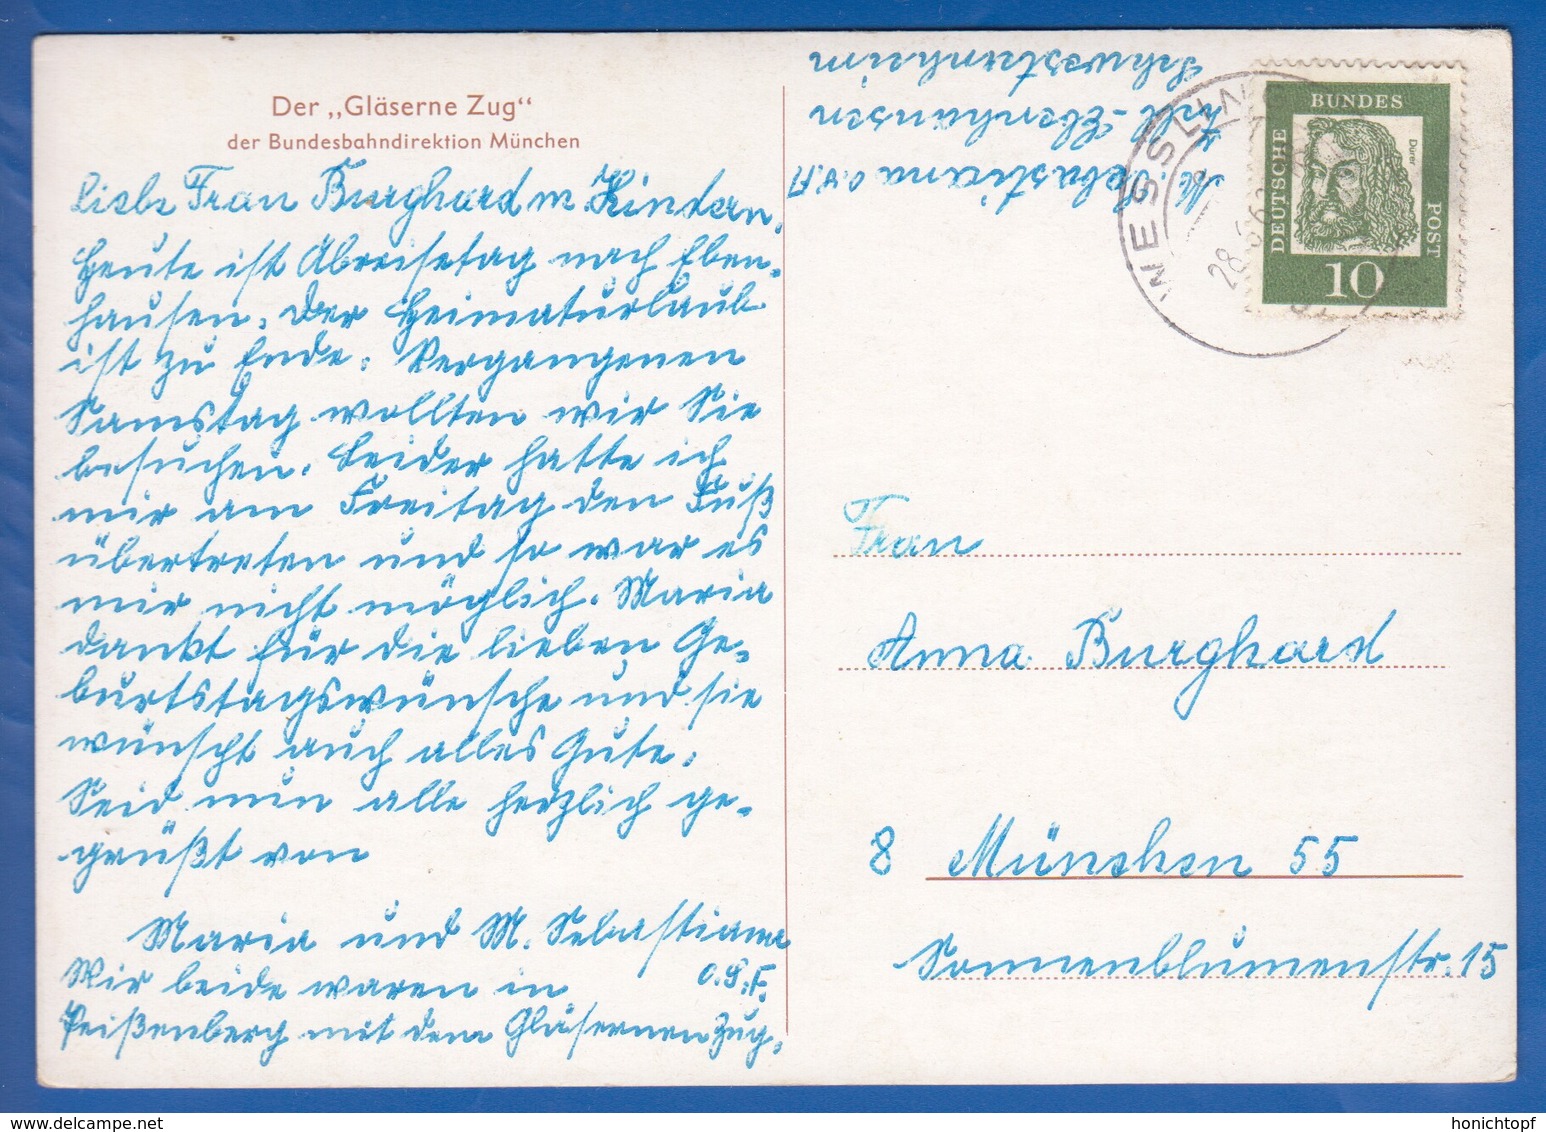 Der „Gläserne Zug"
der Bundesbahndirektion München
Liebe Frau Burghard m. Kindern,
Heute ist Abreisetag nach Eben-
hausen. Der Heimaturlaub
ist zu Ende. Vergangenen
Samstag wollten wir Sie
besuchen. Leider hatte ich
mir am Freitag den Fuß
übertreten und so war es
mir nicht möglich. Maria
dankt für die lieben Ge-
burtstagswünsche und sie
wünscht auch alles Gute.
Seid nun alle herzlich ge-
grüßt von
Maria und M. Sebastiana
O.S.F.
Wir beide waren in
Peißenberg mit dem Gläsernen Zug.
M. Sebastiana
Ebenhausen
Schwesternheim
WESSLING
28.
DEUTSCHE
BUNDES
POST
Dürer
10
Frau
Anna Burghard
8 München 55
Sonnenblumenstr. 15
honichtopf